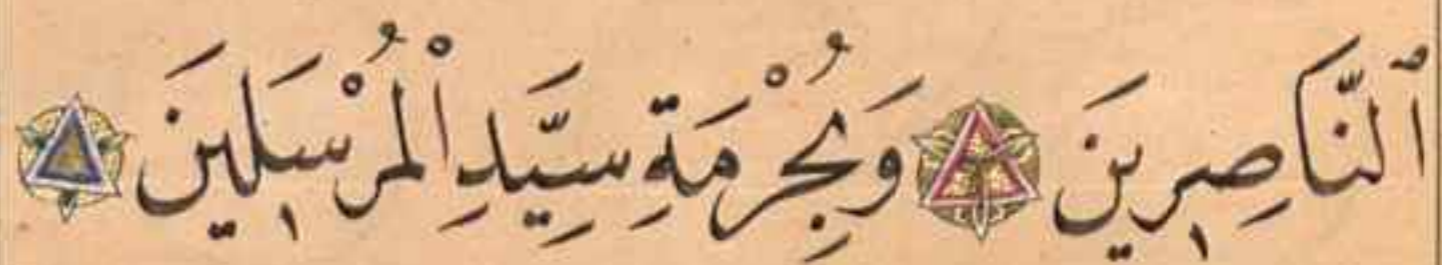 ٱلنَّاصِرِينَ وَبِحُرْمَةِ سَيِّدِ الْمُرْسَلِينَ